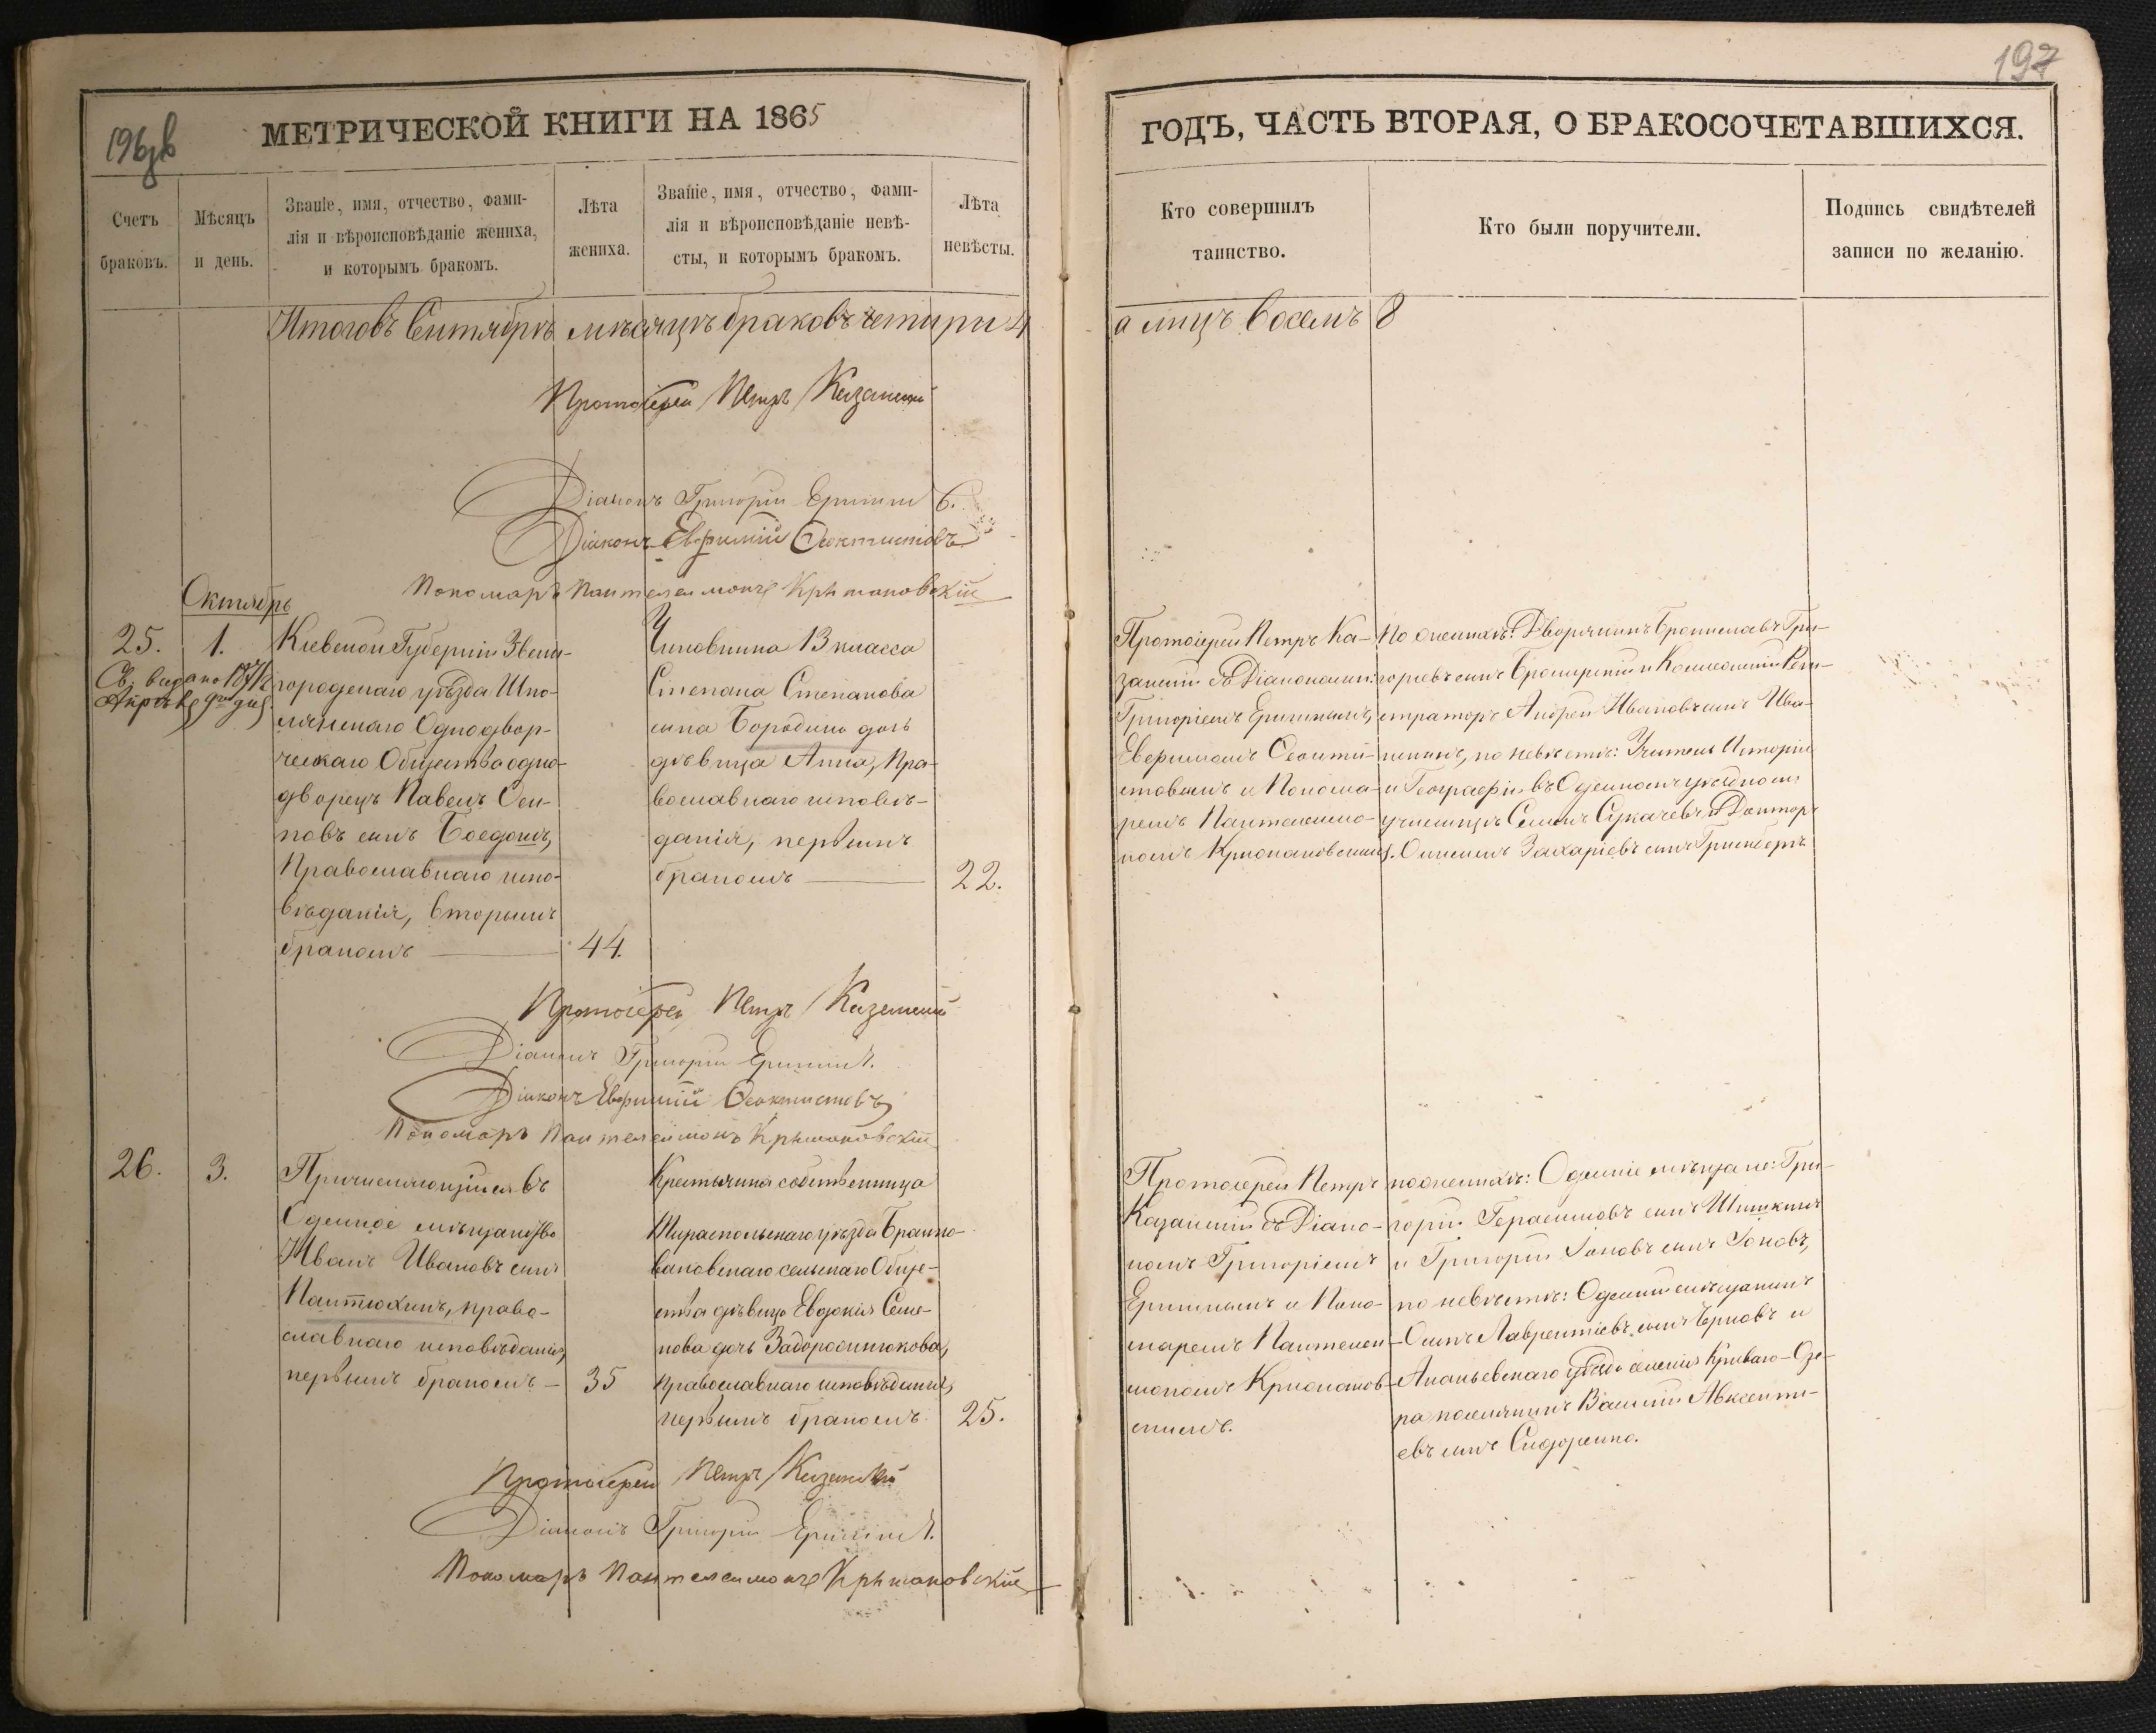 196 об
197
МЕТРИЧЕСКОЙ КНИГИ НА 1865
ГОДЪ, ЧАСТЬ ВТОРАЯ, О БРАКОСОЧЕТАВШИХСЯ.
Счетъ
браковъ.
Мѣсяцъ
и день.
Званіе, имя, отчество, фами-
лія и вѣроисповѣданіе жениха,
и которымъ бракомъ.
Лѣта
жениха.
Званіе, имя, отчество, фами-
лія и вѣроисповѣданіе невѣ-
сты, и которымъ бракомъ.
Лѣта
невѣсты.
Кто совершилъ
таинство.
Кто были поручители.
Подпись свидѣтелей
записи по желанію.
Итого въ Сентябрѣ мѣсяцѣ браковъ четыри 4
а лицъ восемъ 8
Протоіерей Петръ Казанскій
Діаконъ Григорій
Діаконъ Евфимій Ѳеоктистовъ
Пономарь Пантелеимонъ Крыжановскій
Октябрь
25.
Св. выдано 1871
1.
Кіевской Губерніи Звени-
городскаго уѣзда Шпо-
лянскаго Однодвор-
ческаго Общества одно-
дворецъ Павелъ Оси-
повъ сынъ
Православнаго испо-
вѣданія, вторымъ
бракомъ
44.
Чиновника 13 класса
Степана Степанова
сына Бородина дочь
дѣвица Анна, Пра-
вославнаго исповѣ-
данія, первымъ
бракомъ
22.
Протоіерей Петръ Ка-
занскій съ Діаконами:
Григоріемъ
Евфиміемъ Ѳеокти-
стовымъ и Понома-
ремъ Пантелеимо-
номъ Крыжановскимъ.
По женихѣ: Дворянинъ Брониславъ Гри-
горьевъ сынъ и Коллежскій Реги-
страторъ Андрей Ивановъ сынъ Ива-
по невѣстѣ: Учитель Исторіи
и Географіи въ Одесскомъ уѣздномъ
училищѣ Семенъ Сукачевъ и Докторъ
Захаріевъ сынъ Гринбергъ
Протоіерей Петръ Казанскій
Діаконъ Григорій
Діаконъ Евфимій Ѳеоктистовъ
Пономарь Пантелеимонъ Крыжановскій
26.
3.
Причисляющійся въ
Одесское мѣщанство
Иванъ Ивановъ сынъ
Пантюхинъ, право-
славнаго исповѣданія,
первымъ бракомъ
35
Крестьянка собственница
Тираспольскаго уѣзда
сельскаго Обще-
ства дѣвица Евдокія Семе-
нова дочь
православнаго исповѣданія,
первымъ бракомъ
25.
Протоіерей Петръ
Казанскій съ Діако-
номъ Григоріемъ
и Поно-
маремъ Пантелеи-
мономъ Крыжанов-
скимъ.
по женихѣ: Одесскіе мѣщане: Гри-
горій Герасимовъ сынъ Шишкинъ
и Григорій Іоновъ сынъ Іоновъ,
по невѣстѣ: Одесскій мѣщанинъ
Осипъ Лаврентіевъ сынъ Черновъ и
Ананьевскаго уѣзда селенія Криваго-Озе-
ра поселянинъ Василій Авксенти-
евъ сынъ Сидоренко.
Протоіерей Петръ Казанскій
Діаконъ Григорій
Пономарь Пантелеимонъ Крыжановскій